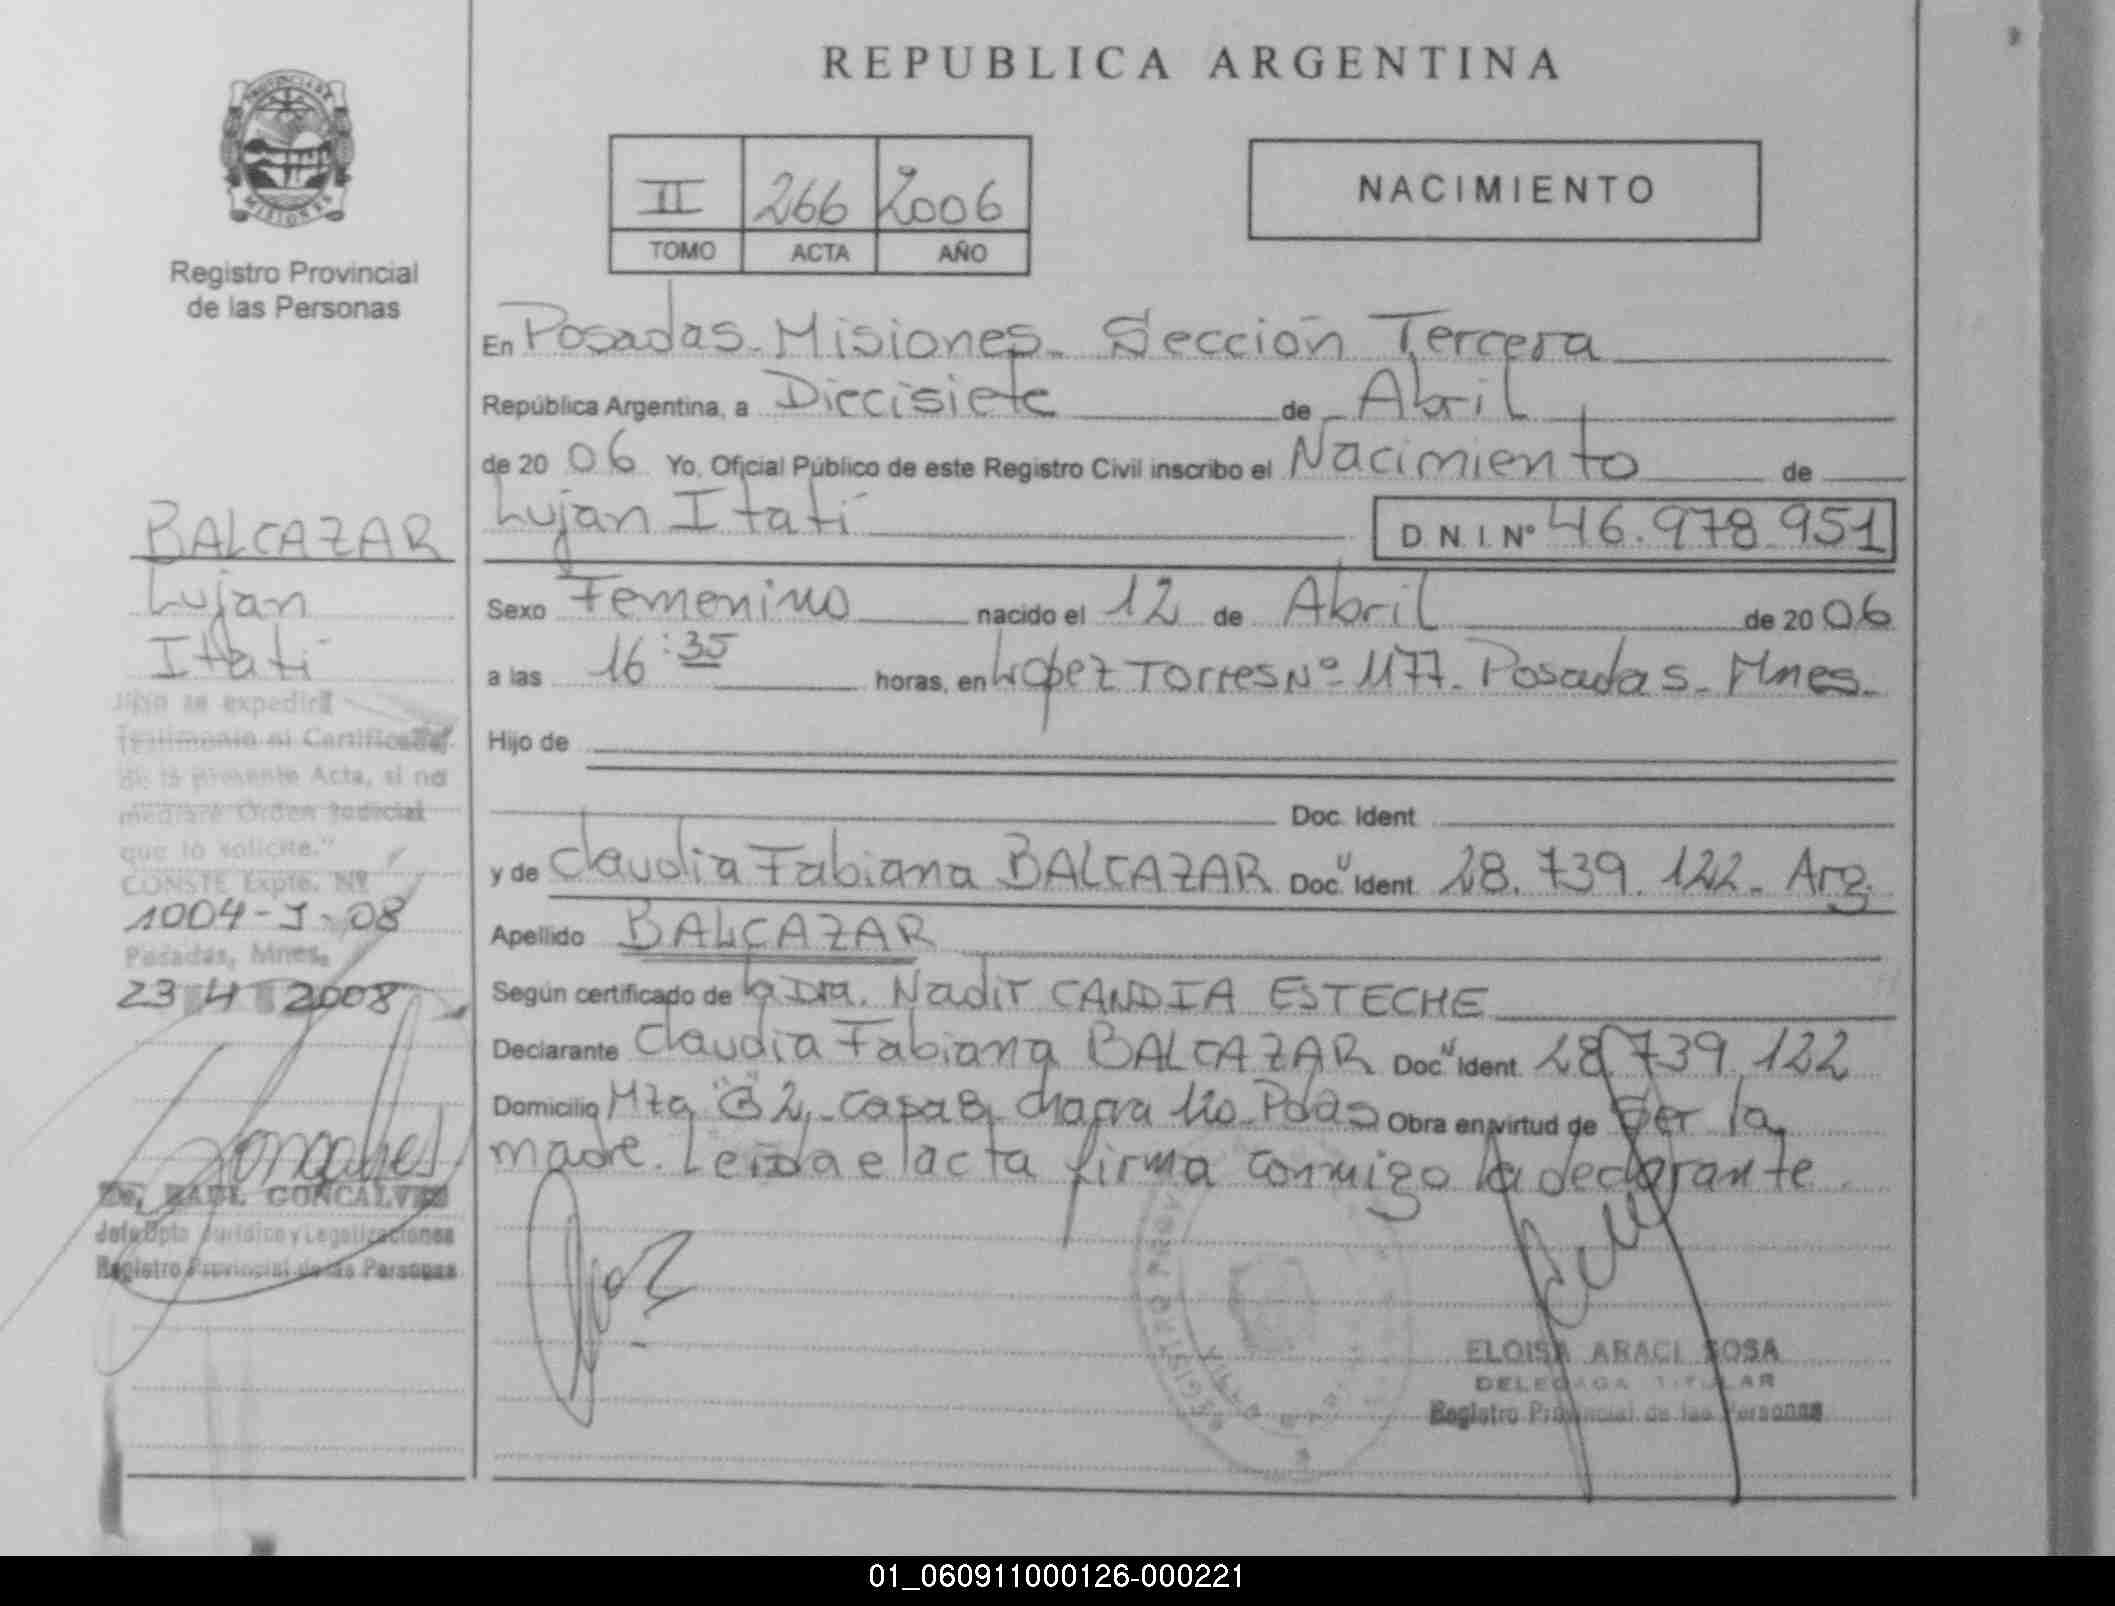 REPUBLICA ARGENTINA
PROVINCIA DE
MISIONES
Registro Provincial
de las Personas
II 266 2006
TOMO ACTA AÑO
NACIMIENTO
En Posadas - Misiones - Sección Tercera
República Argentina, a Diecisiete de Abril
de 2006 Yo, Oficial Público de este Registro Civil inscribo el Nacimiento de
Lujan Itatí
D.N.I. Nº 46.978.951
Sexo Femenino nacido el 12 de Abril de 2006
a las 16:35 horas, en López Torres Nº 1177 - Posadas - Mnes.
Hijo de
Doc. Ident
y de Claudia Fabiana BALCAZAR Doc. Ident. 28.739.122 - Arg.
Apellido BALCAZAR
Según certificado de la Dra. Nadir CANDIA ESTECHE
Declarante Claudia Fabiana BALCAZAR Doc. Ident. 28.739.122
Domicilio Mza 2, casa 8, chacra 120 - Pdas Obra en virtud de ser la
madre. Leida el acta firma conmigo la declarante.
ELOISA ARACI SOSA
DELEGADA TITULAR
Registro Provincial de las Personas
BALCAZAR
Lujan
Itatí
se expedirá
Testimonio ni Certificado
de la presente Acta, si no
mediare Orden Judicial
que lo solicite."
CONSTE Expte. Nº
1004-J-08
Posadas, Mnes.
23 4 2008
Dr. RAUL GONCALVES
Jefe Dpto Jurídico y Legalizaciones
Registro Provincial de las Personas
01_060911000126-000221